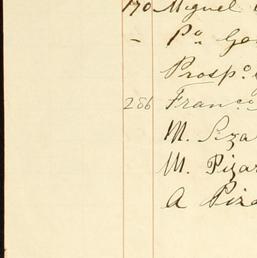 170 Miguel
- Po Go
Prospo
286 Franco
M. Liza
M. Piza
A Piza